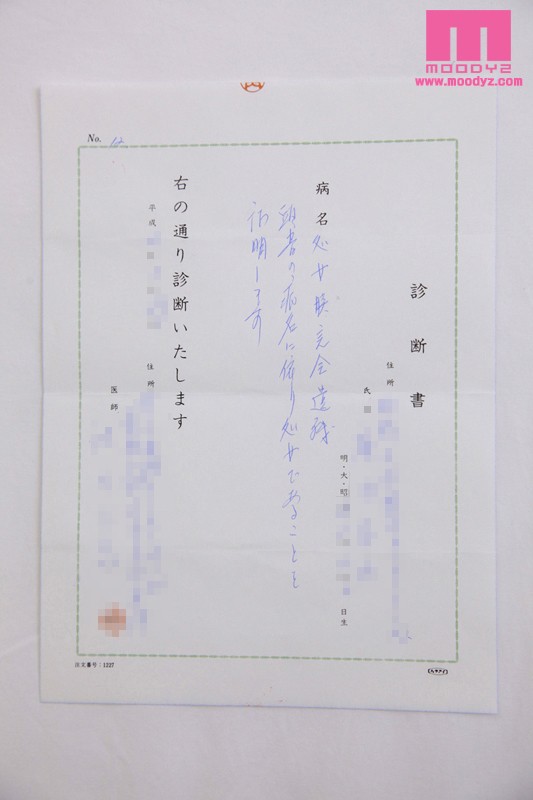 MOODYZ
www.moodyz.com
No. 12
診断書
住所
氏
明・大・昭
日生
病名 処女膜完全遺残
頭書の病名に依り処女であることを
証明します
右の通り診断いたします
平成
住所
医師
注文番号:1227